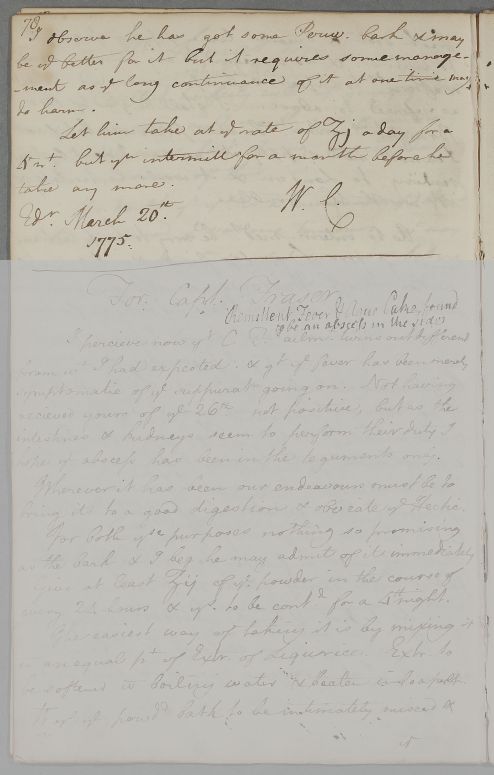 78
I observe he has got some Peruv. bark & may
be ye better for it but it requires some manage-
ment as ye long continuance of it at one time may
do harm.
Let him take at ye rate of ʒj a day for a
but yn intermitt for a month before he
take any more.
W. C.
Edr. March 20th
1775.
For Capt. Fraser
Remittent Fever & Ague Cake, found
to be an abscess in the side
I percieve now yt C. F. ailmt. turns out different
from wt I had expected & yt ye fever has been merely
symptomatic of ye suppuratn going on. Not having
recieved yours of ye 26th not positive, but as the
intestines & kidneys seem to perform their duty I
hope ye abscess has been in the teguments only.
Wherever it has been our endeavours must be to
bring it to a good digestion & obviate ye Hectic.
For both yse purposes nothing so promising
as the bark & I beg he may admit of it immediately
Give at least ʒij of ye powder in the course of
every 24 hours & yt to be contd for a 4tnight.
The easiest way of taking it is by mixing it
in an equal pt of Extr. of Liquorice. Extr. to
be softend in boiling water & beaten
of ye powdd bark to be intimately mixed &